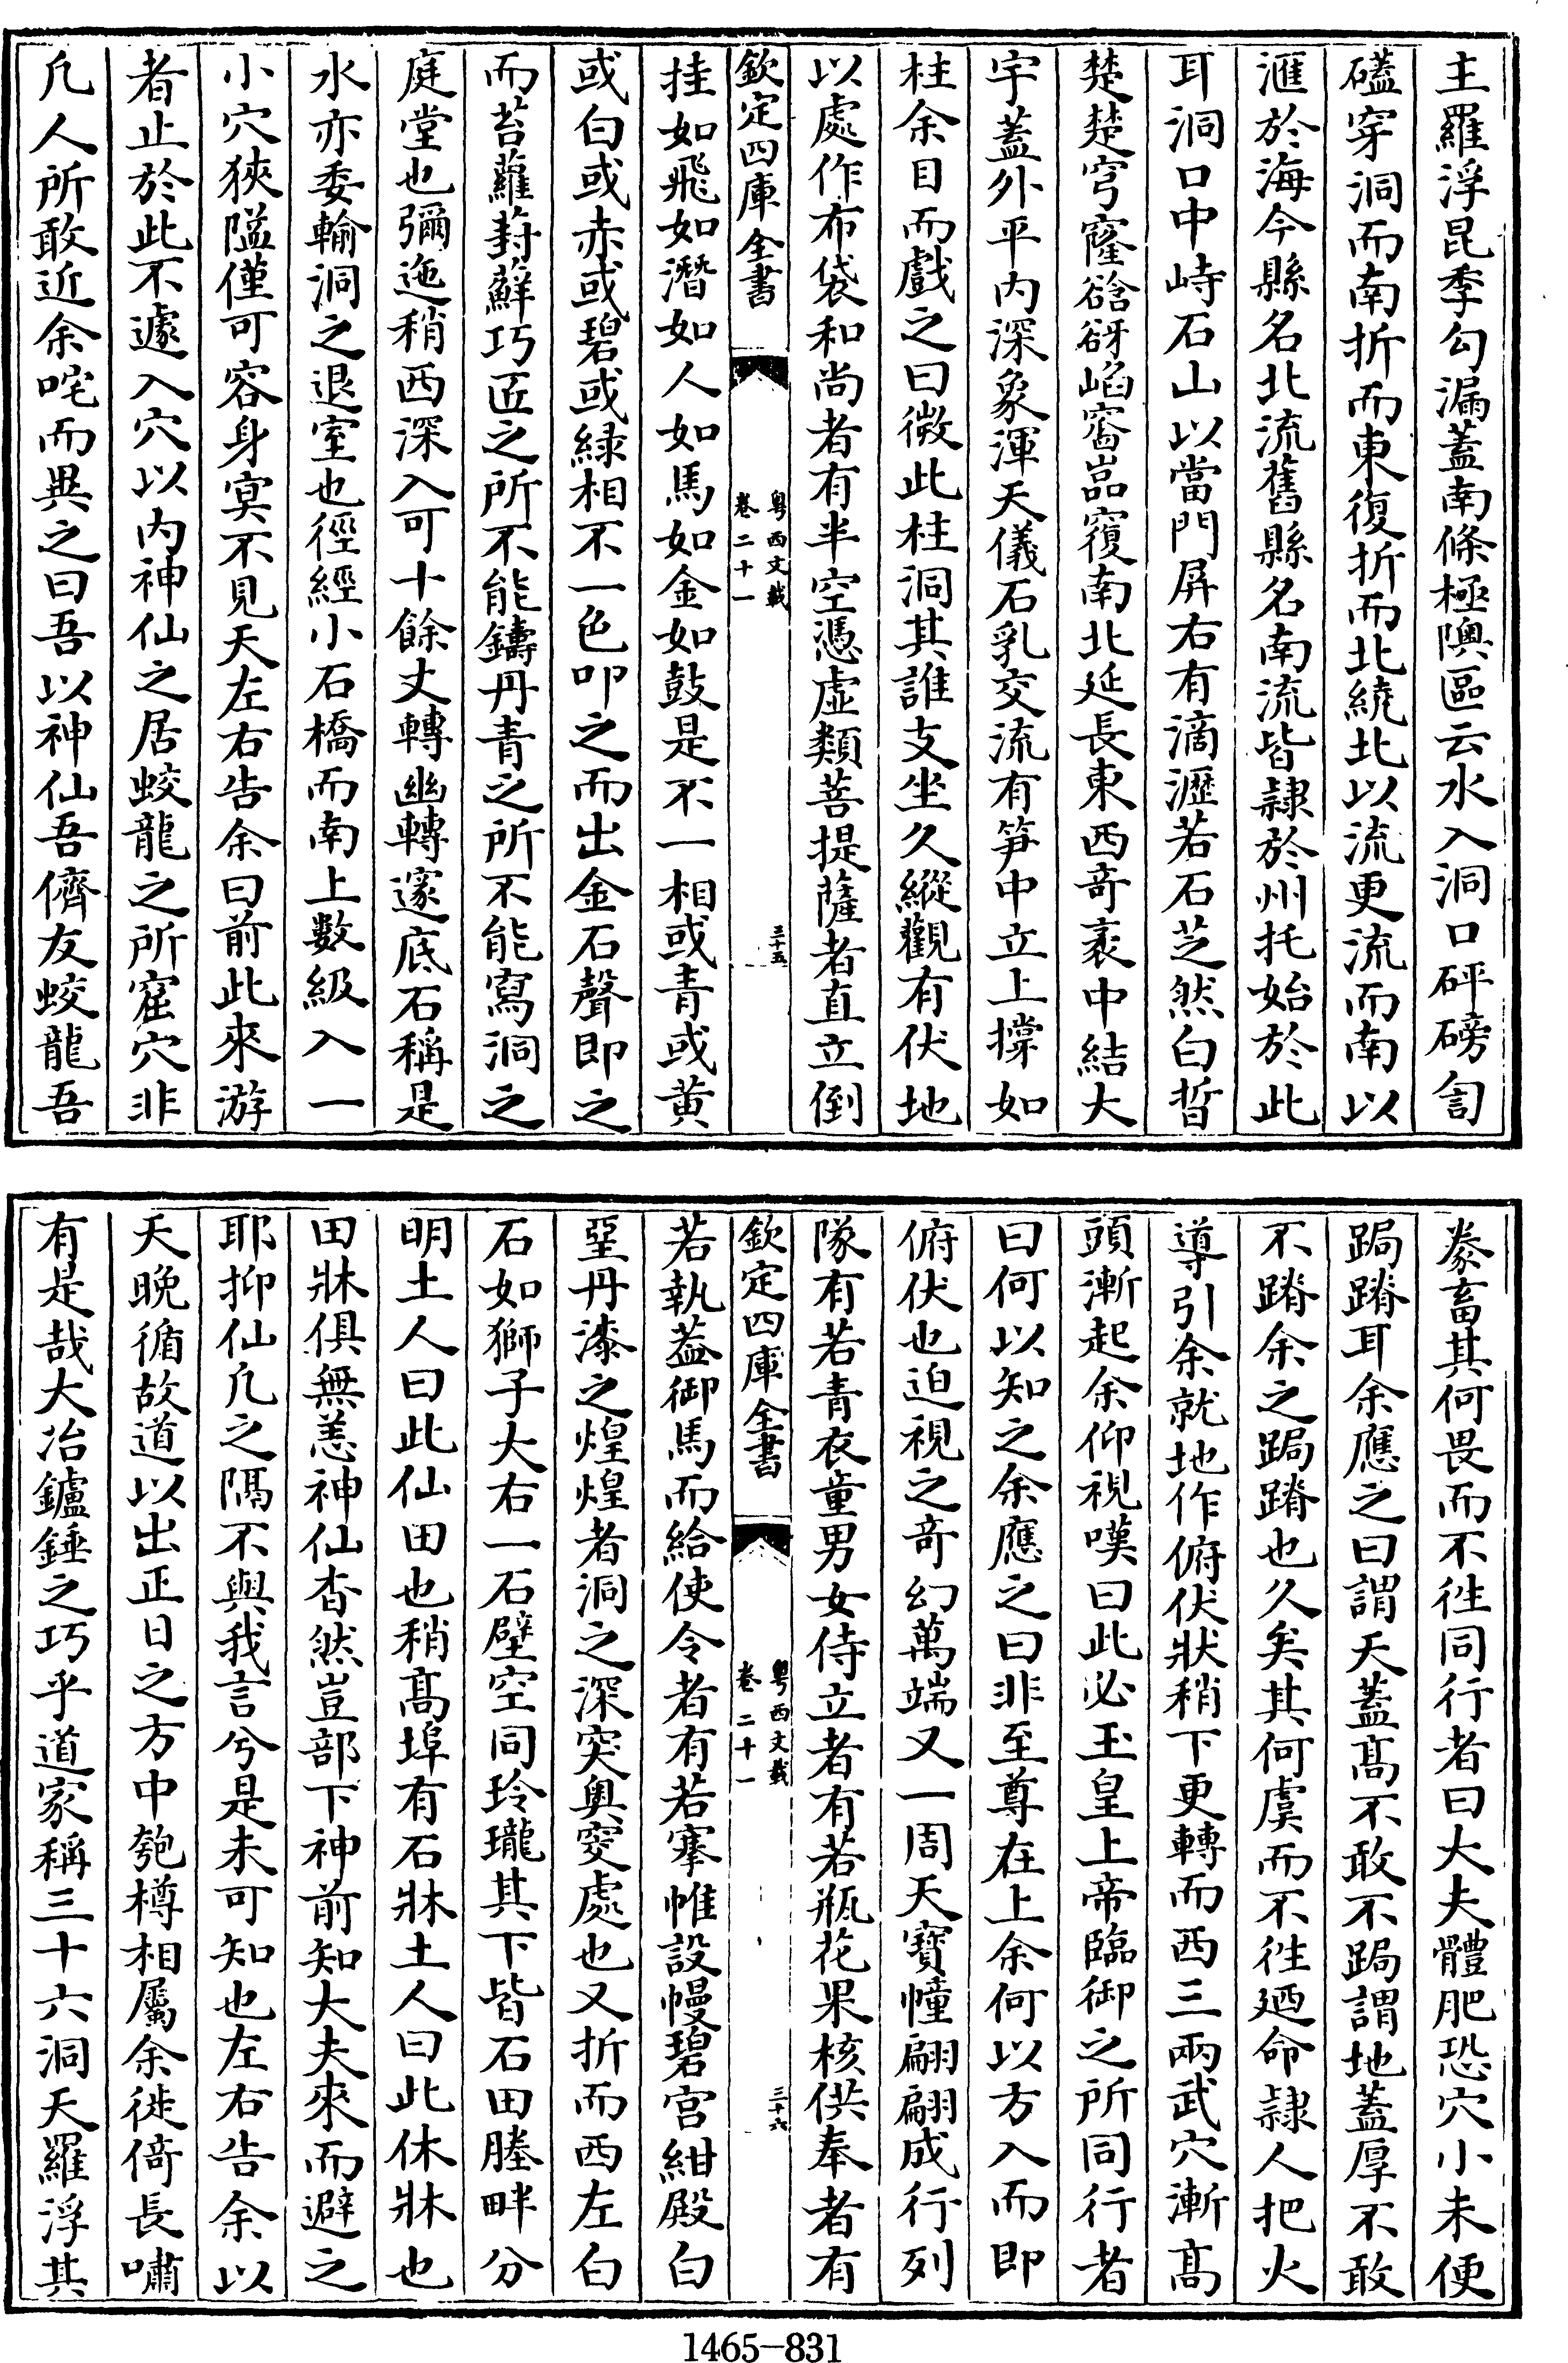 主羅浮昆季勾漏蓋南條極隩區云水入洞口砰磅訇
礚穿洞而南折而東復折而北繞北以流更流而南以
滙於海今縣名北流舊縣名南流皆隷於州托始於此
耳洞口中峙石山以當門屏右有滴瀝若石芝然白晳
楚楚穹窿谽谺㟅窞嵓窽南北延長東西竒袤中結大
宇蓋外平内深象渾天儀石乳交流有笋中立上撑如
柱余目而戲之曰微此柱洞其誰支坐久縱觀有伏地
以處作布袋和尚者有半空憑虛類菩提薩者直立倒
欽定四庫全書
粤西文載
卷二十一
三十五
挂如飛如潛如人如馬如金如鼓是不一相或青或黄
或白或赤或碧或緑相不一色叩之而出金石聲即之
而苔蘿葑蘚巧匠之所不能鑄丹青之所不能寫洞之
庭堂也彌迤稍西深入可十餘丈轉幽轉邃底石稱是
水亦委輸洞之退室也徑經小石橋而南上數級入一
小穴狹隘僅可容身㝠不見天左右告余曰前此來游
者止於此不遽入穴以内神仙之居蛟龍之所窟穴非
凡人所敢近余咤而異之曰吾以神仙吾儕友蛟龍吾
豢畜其何畏而不徃同行者曰大夫體肥恐穴小未便
跼蹐耳余應之曰謂天蓋髙不敢不跼謂地蓋厚不敢
不蹐余之跼蹐也久矣其何虞而不徃廼命隷人把火
導引余就地作俯伏狀稍下更轉而西三兩武穴漸髙
頭漸起余仰視嘆曰此必玉皇上帝臨御之所同行者
曰何以知之余應之曰非至尊在上余何以方入而即
俯伏也迫視之竒幻萬端又一周天寳幢翩翩成行列
隊有若青衣童男女侍立者有若瓶花果核供奉者有
欽定四庫全書
粤西文載
卷二十一
三十六
若執葢御馬而給使令者有若搴帷設幔碧宫紺殿白
堊丹漆之煌煌者洞之深突奥窔處也又折而西左白
石如獅子大右一石壁空同玲瓏其下皆石田塍畔分
明土人曰此仙田也稍髙埠有石牀土人曰此休牀也
田牀俱無恙神仙杳然豈部下神前知大夫來而避之
耶抑仙凡之隔不與我言兮是未可知也左右告余以
天晚循故道以出正日之方中匏樽相屬余徙倚長嘯
有是哉大冶鑪錘之巧乎道家稱三十六洞天羅浮其
1465-831